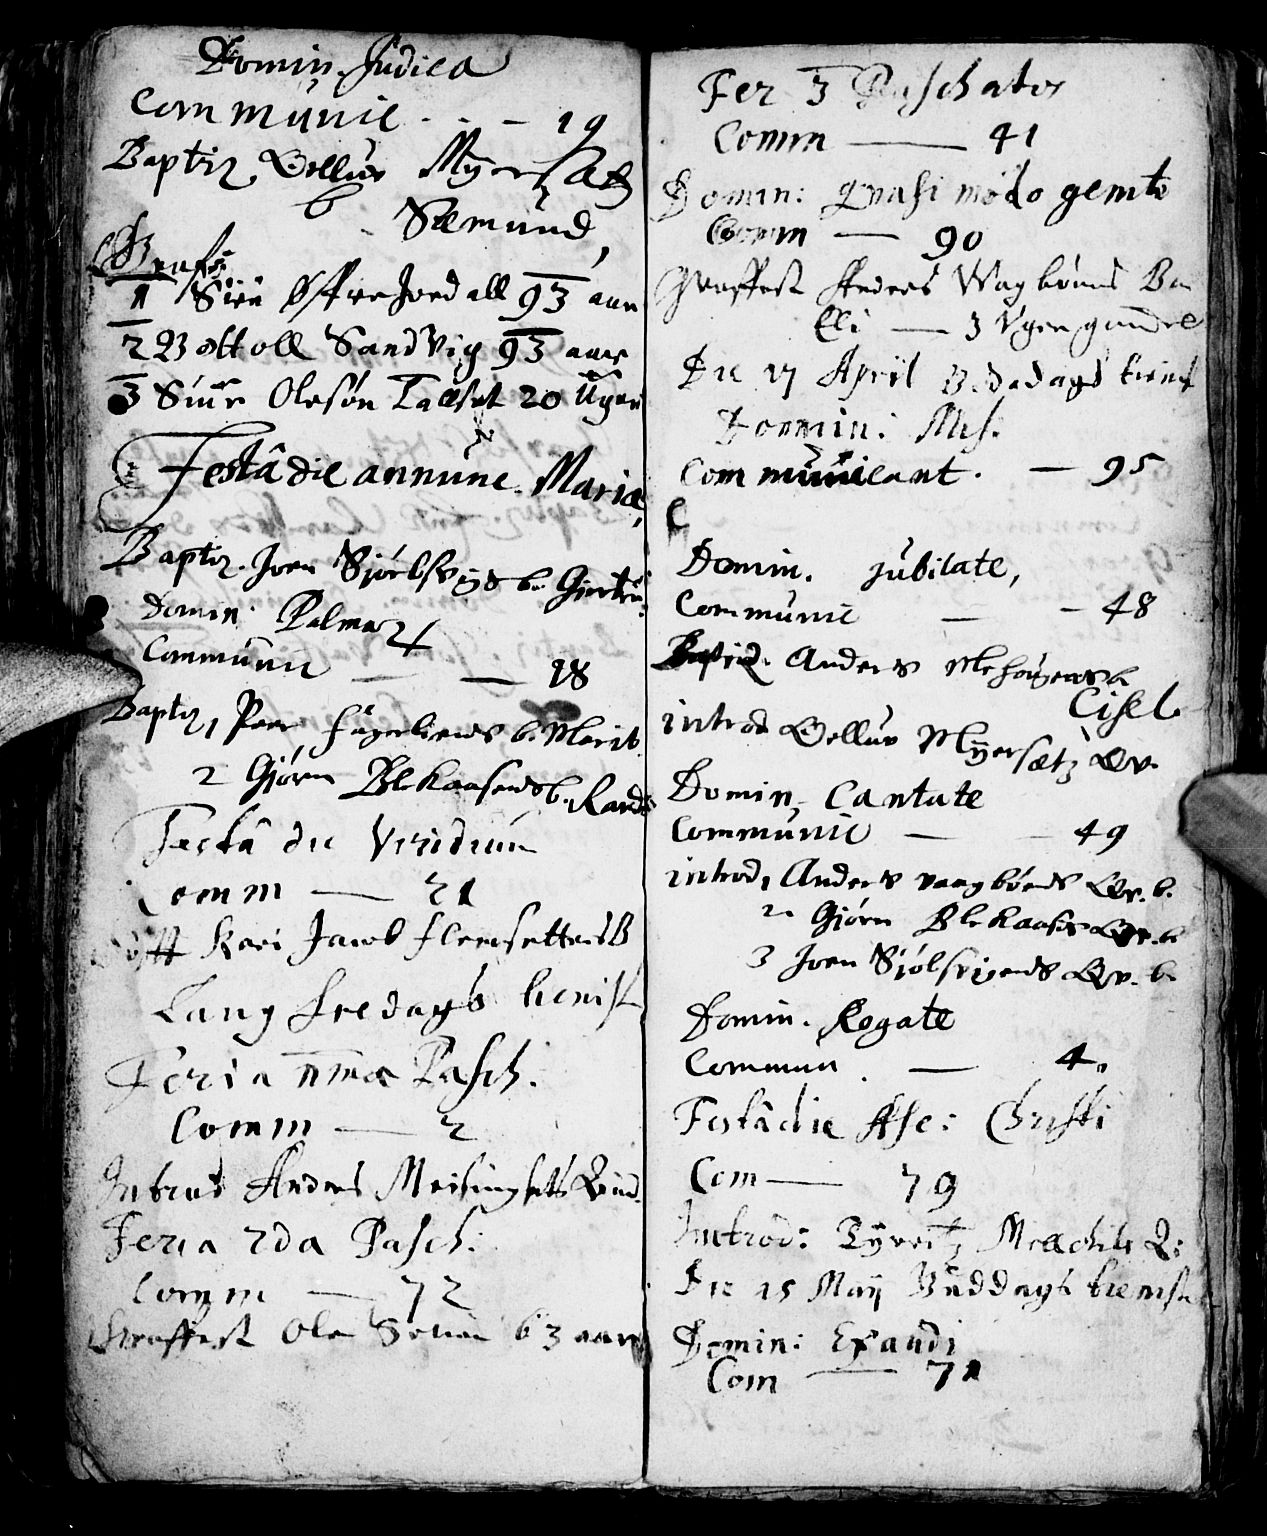 Domin. Judica
Communic. . . — 19
Baptiz. Gelluv Myersætz
b Sæmund,
Graft
1 Siru Østrejordall 93 aar
2 Bottoll Sandvig 93 aar
3 Siur Olesøn Talset 20 Uger
Festâ die annunc. Mariæ,
Baptiz. Joen Sjølsvigs b. Giertru
Domin. Palmar
Communic — — 18
Baptiz, Peer b. Marit
2 Gjørn Blekaasens b. Rand
Festâ die Viridium
Comm — 21
Kari Jacob
Lang fredags tienist
Feria prima Pasch.
Comm — 2
Introd Anders Meisingsets Qvind.
Feria 2da Pasch.
Comm — 72
Graffest Ole b 3 aar
Fer 3 Paschatos
Comm — 41
Domin: Quasi modo genito
Comm — 90
Graffest Anders Vagbøens Ba
Eli — 3 Uger gamel
Die 17 Apriil Bededags tienist
Domin: Mis.
Communicant. — 95
Domin. Jubilate,
Communic — — 48
Baptiz. Anders b.
Cisel.
introd Gelluv Myersætz Qv.
Domin, Cantate
Communic — — 49
introd, Anders vaagbøens Qv. b.
2 Gjørn Blekaasens Qv. b
3 Joen Sjølsvigens Qv. b.
Domin. Rogate
Commun . — 4.
Festâ die Asc: Christi
Com — 79
Introd: Q:
Die 15 Maij Buddags tienist
Domin: Exaudi
Com — 71